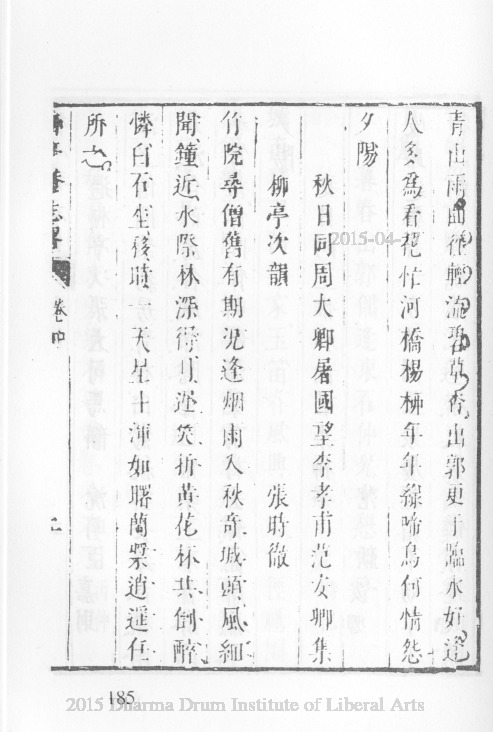 青山雨曲徑輕流碧草香出郭更于臨水好逢
人多為看花忙河橋楊柳年年綠啼鳥何情怨
夕陽
秋日同周大卿屠國望李孝甫范安卿集
柳亭次韻
張時徹
竹院尋僧舊有期況逢烟雨入秋奇城頭風細
聞鐘近水際林深得月遲笑折黃花杯共倒醉
憐白石坐移時天星十渾如曙蘭槳逍遙任
所之
菴志畧
卷中
2015-04-
185
2015 Dharma Drum Institute of Liberal Arts